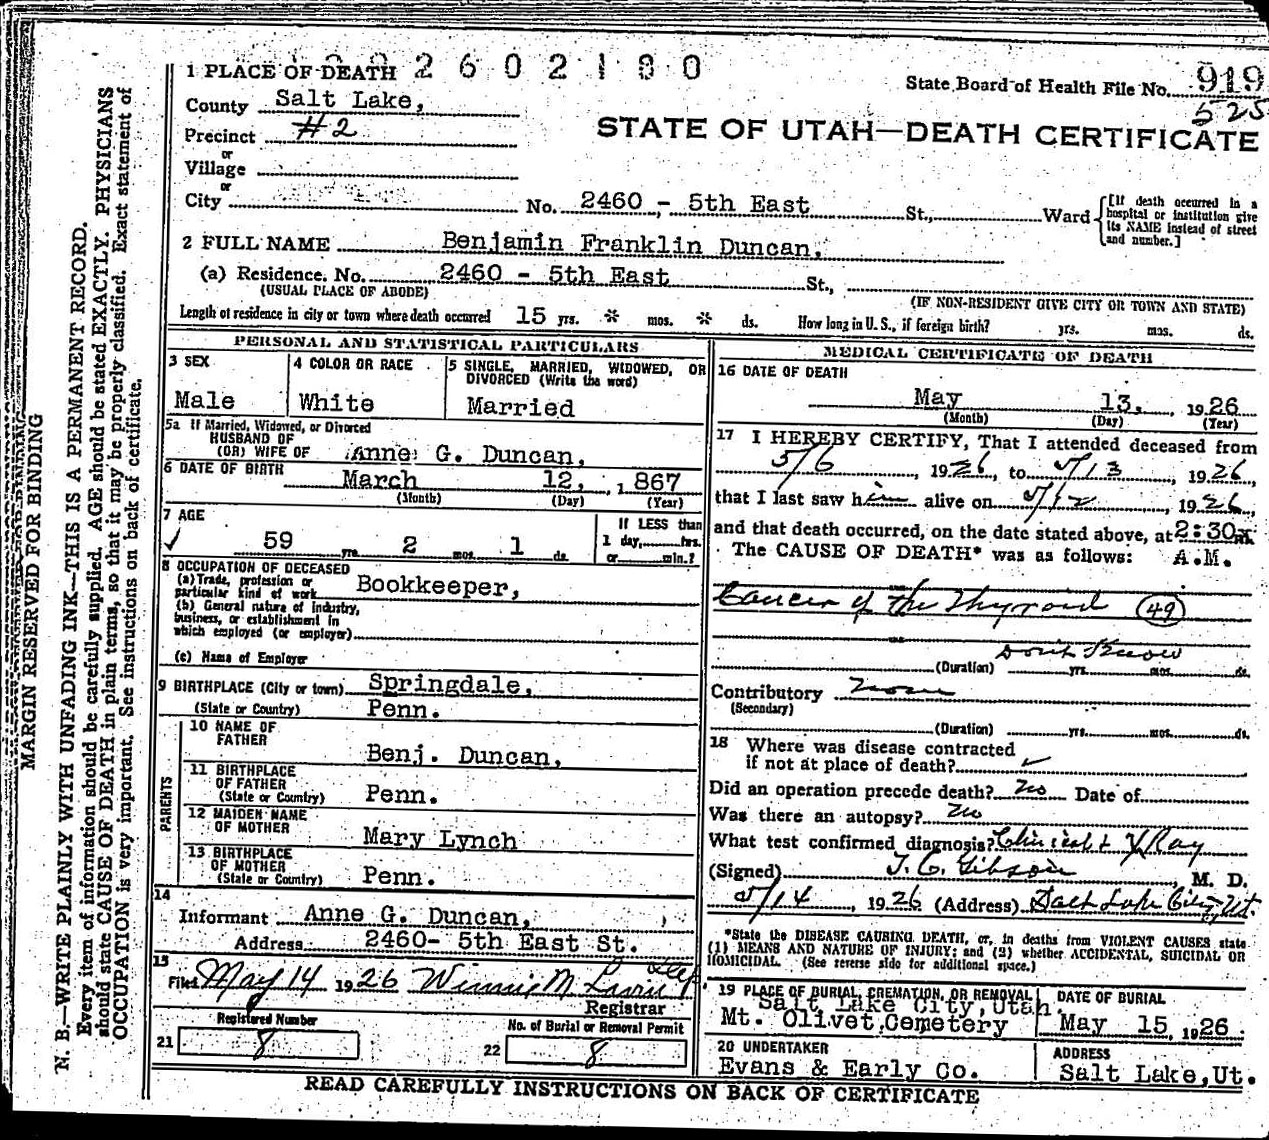 2602180
State Board of Health File No. 919
525
1 PLACE OF DEATH
County Salt Lake,
Precinct #2
or
Village
or
City
STATE OF UTAH—DEATH CERTIFICATE
No. 2460 - 5th East St., Ward
[If death occurred in a hospital or institution give its NAME instead of street and number.]
2 FULL NAME Benjamin Franklin Duncan,
(a) Residence. No. 2460 - 5th East St.,
(USUAL PLACE OF ABODE) (IF NON-RESIDENT GIVE CITY OR TOWN AND STATE)
Length of residence in city or town where death occurred 15 yrs. * mos. * ds. How long in U. S., if foreign birth? yrs. mos. ds.
PERSONAL AND STATISTICAL PARTICULARS
3 SEX
Male
4 COLOR OR RACE
White
5 SINGLE, MARRIED, WIDOWED, OR DIVORCED (Write the word)
Married
5a If Married, Widowed, or Divorced
HUSBAND OF
(OR) WIFE OF Anne G. Duncan,
6 DATE OF BIRTH March 12, 1867
(Month) (Day) (Year)
7 AGE
59 yrs. 2 mos. 1 ds.
If LESS than
1 day, hrs.
or min.?
8 OCCUPATION OF DECEASED
(a) Trade, profession or
particular kind of work Bookkeeper,
(b) General nature of industry,
business, or establishment in
which employed (or employer)
(c) Name of Employer
9 BIRTHPLACE (City or town) Springdale,
(State or Country) Penn.
PARENTS
10 NAME OF
FATHER Benj. Duncan,
11 BIRTHPLACE
OF FATHER
(State or Country) Penn.
12 MAIDEN NAME
OF MOTHER Mary Lynch
13 BIRTHPLACE
OF MOTHER
(State or Country) Penn.
14
Informant Anne G. Duncan,
Address 2460- 5th East St.
15
Filed May 14 1926 Winnie M.
Registrar
Registered Number
21 8
No. of Burial or Removal Permit
22 8
MEDICAL CERTIFICATE OF DEATH
16 DATE OF DEATH
May 13, 1926
(Month) (Day) (Year)
17 I HEREBY CERTIFY, That I attended deceased from
5/6, 1926, to 5/13, 1926
that I last saw him alive on 5/12, 1926,
and that death occurred, on the date stated above, at 2:30 m.
The CAUSE OF DEATH* was as follows: A.M.
Cancer of the Thyroid (49)
Don't Know
(Duration) yrs. mos. ds.
Contributory none
(Secondary)
(Duration) yrs. mos. ds.
18 Where was disease contracted
if not at place of death? ✓
Did an operation precede death? no Date of
Was there an autopsy? no
What test confirmed diagnosis? Clinical + X Ray
(Signed) J. C. Gibson, M. D.
5/14, 1926 (Address) Salt Lake City, Ut.
*State the DISEASE CAUSING DEATH, or, in deaths from VIOLENT CAUSES state
(1) MEANS AND NATURE OF INJURY; and (2) whether ACCIDENTAL, SUICIDAL OR
HOMICIDAL. (See reverse side for additional space.)
19 PLACE OF BURIAL, CREMATION, OR REMOVAL
Salt Lake City, Utah.
Mt. Olivet Cemetery
DATE OF BURIAL
May 15, 1926.
20 UNDERTAKER
Evans & Early Co.
ADDRESS
Salt Lake, Ut.
READ CAREFULLY INSTRUCTIONS ON BACK OF CERTIFICATE
MARGIN RESERVED FOR BINDING
N. B.—WRITE PLAINLY WITH UNFADING INK—THIS IS A PERMANENT RECORD.
Every item of information should be carefully supplied. AGE should be stated EXACTLY. PHYSICIANS
should state CAUSE OF DEATH in plain terms, so that it may be properly classified. Exact statement of
OCCUPATION is very important. See instructions on back of certificate.